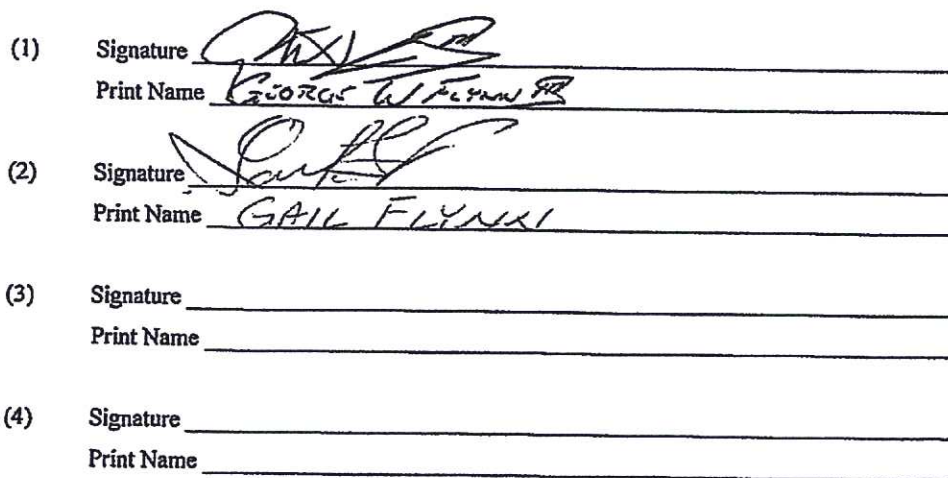 (1) Signature
Print Name GEORGE W FLYNN III
(2) Signature
Print Name GAIL FLYNN
(3) Signature
Print Name
(4) Signature
Print Name